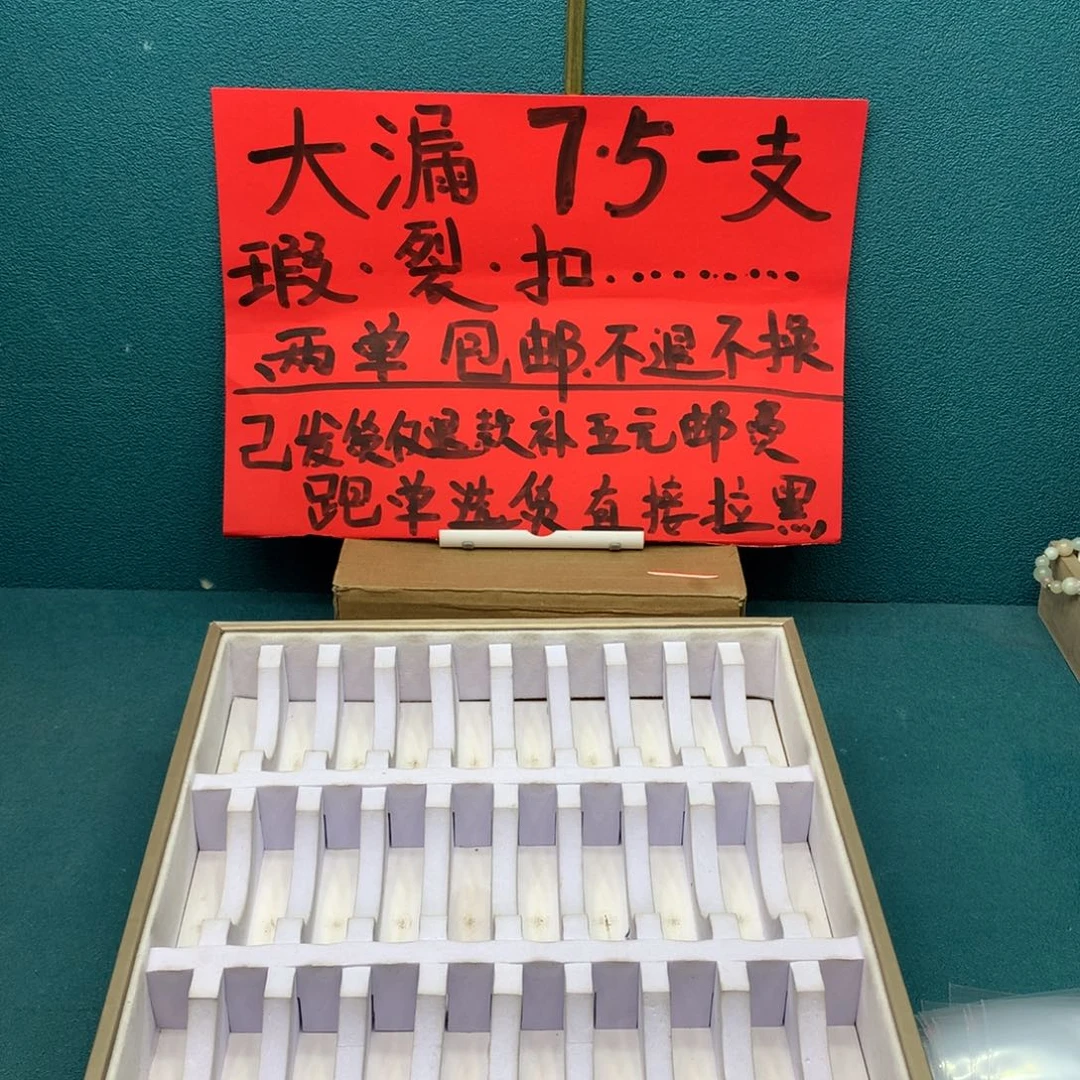 大漏 7.5一支
瑕·裂·扣..........
两单包邮.不退不换
已发货仅退款补五元邮费
跑单选货直接拉黑